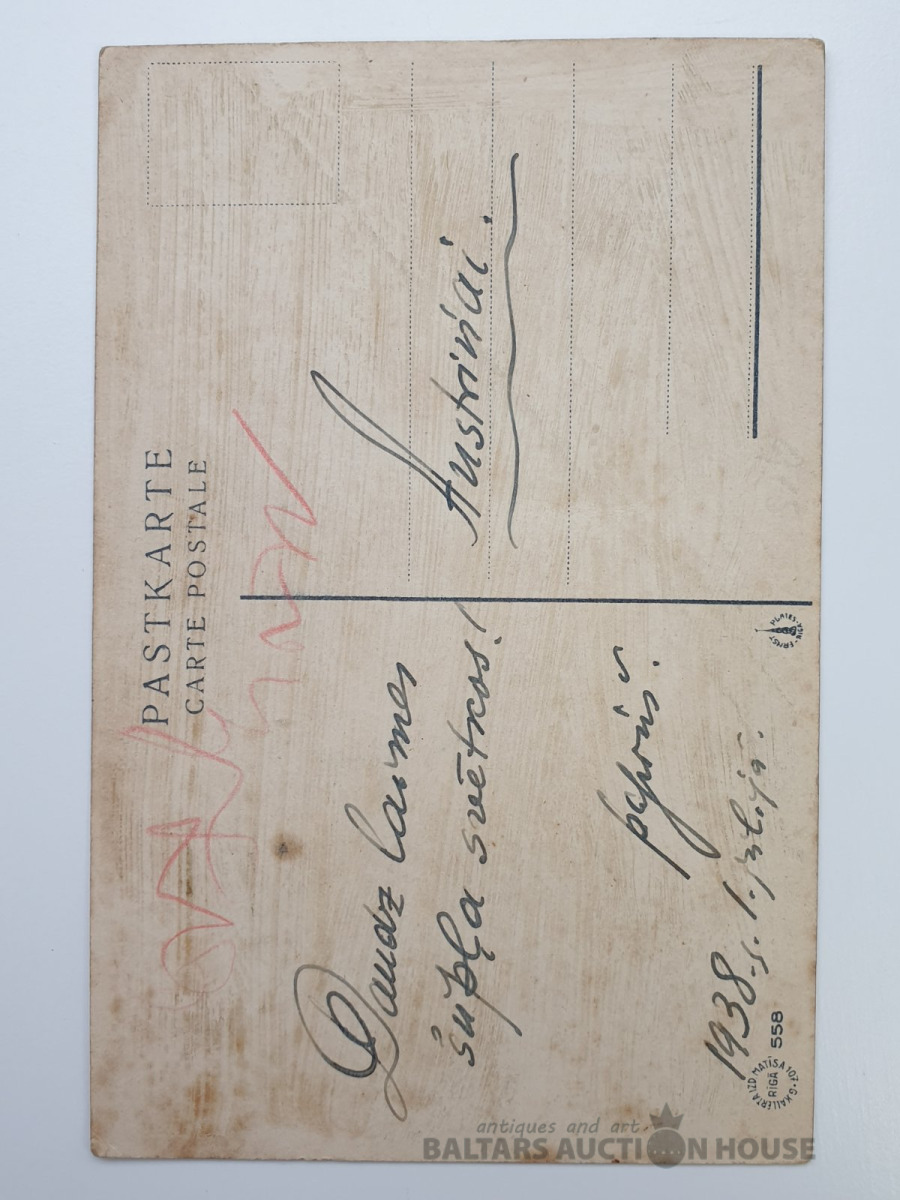 PASTKARTE
CARTE POSTALE
Daudz laimes
šūpļa svētkos!
1938.g. 1. jūlijā.
Austriņai.
G.KAILERTA IZD MATĪSA 107
RĪGĀ
558
antiques and art
BALTARS AUCTION HOUSE